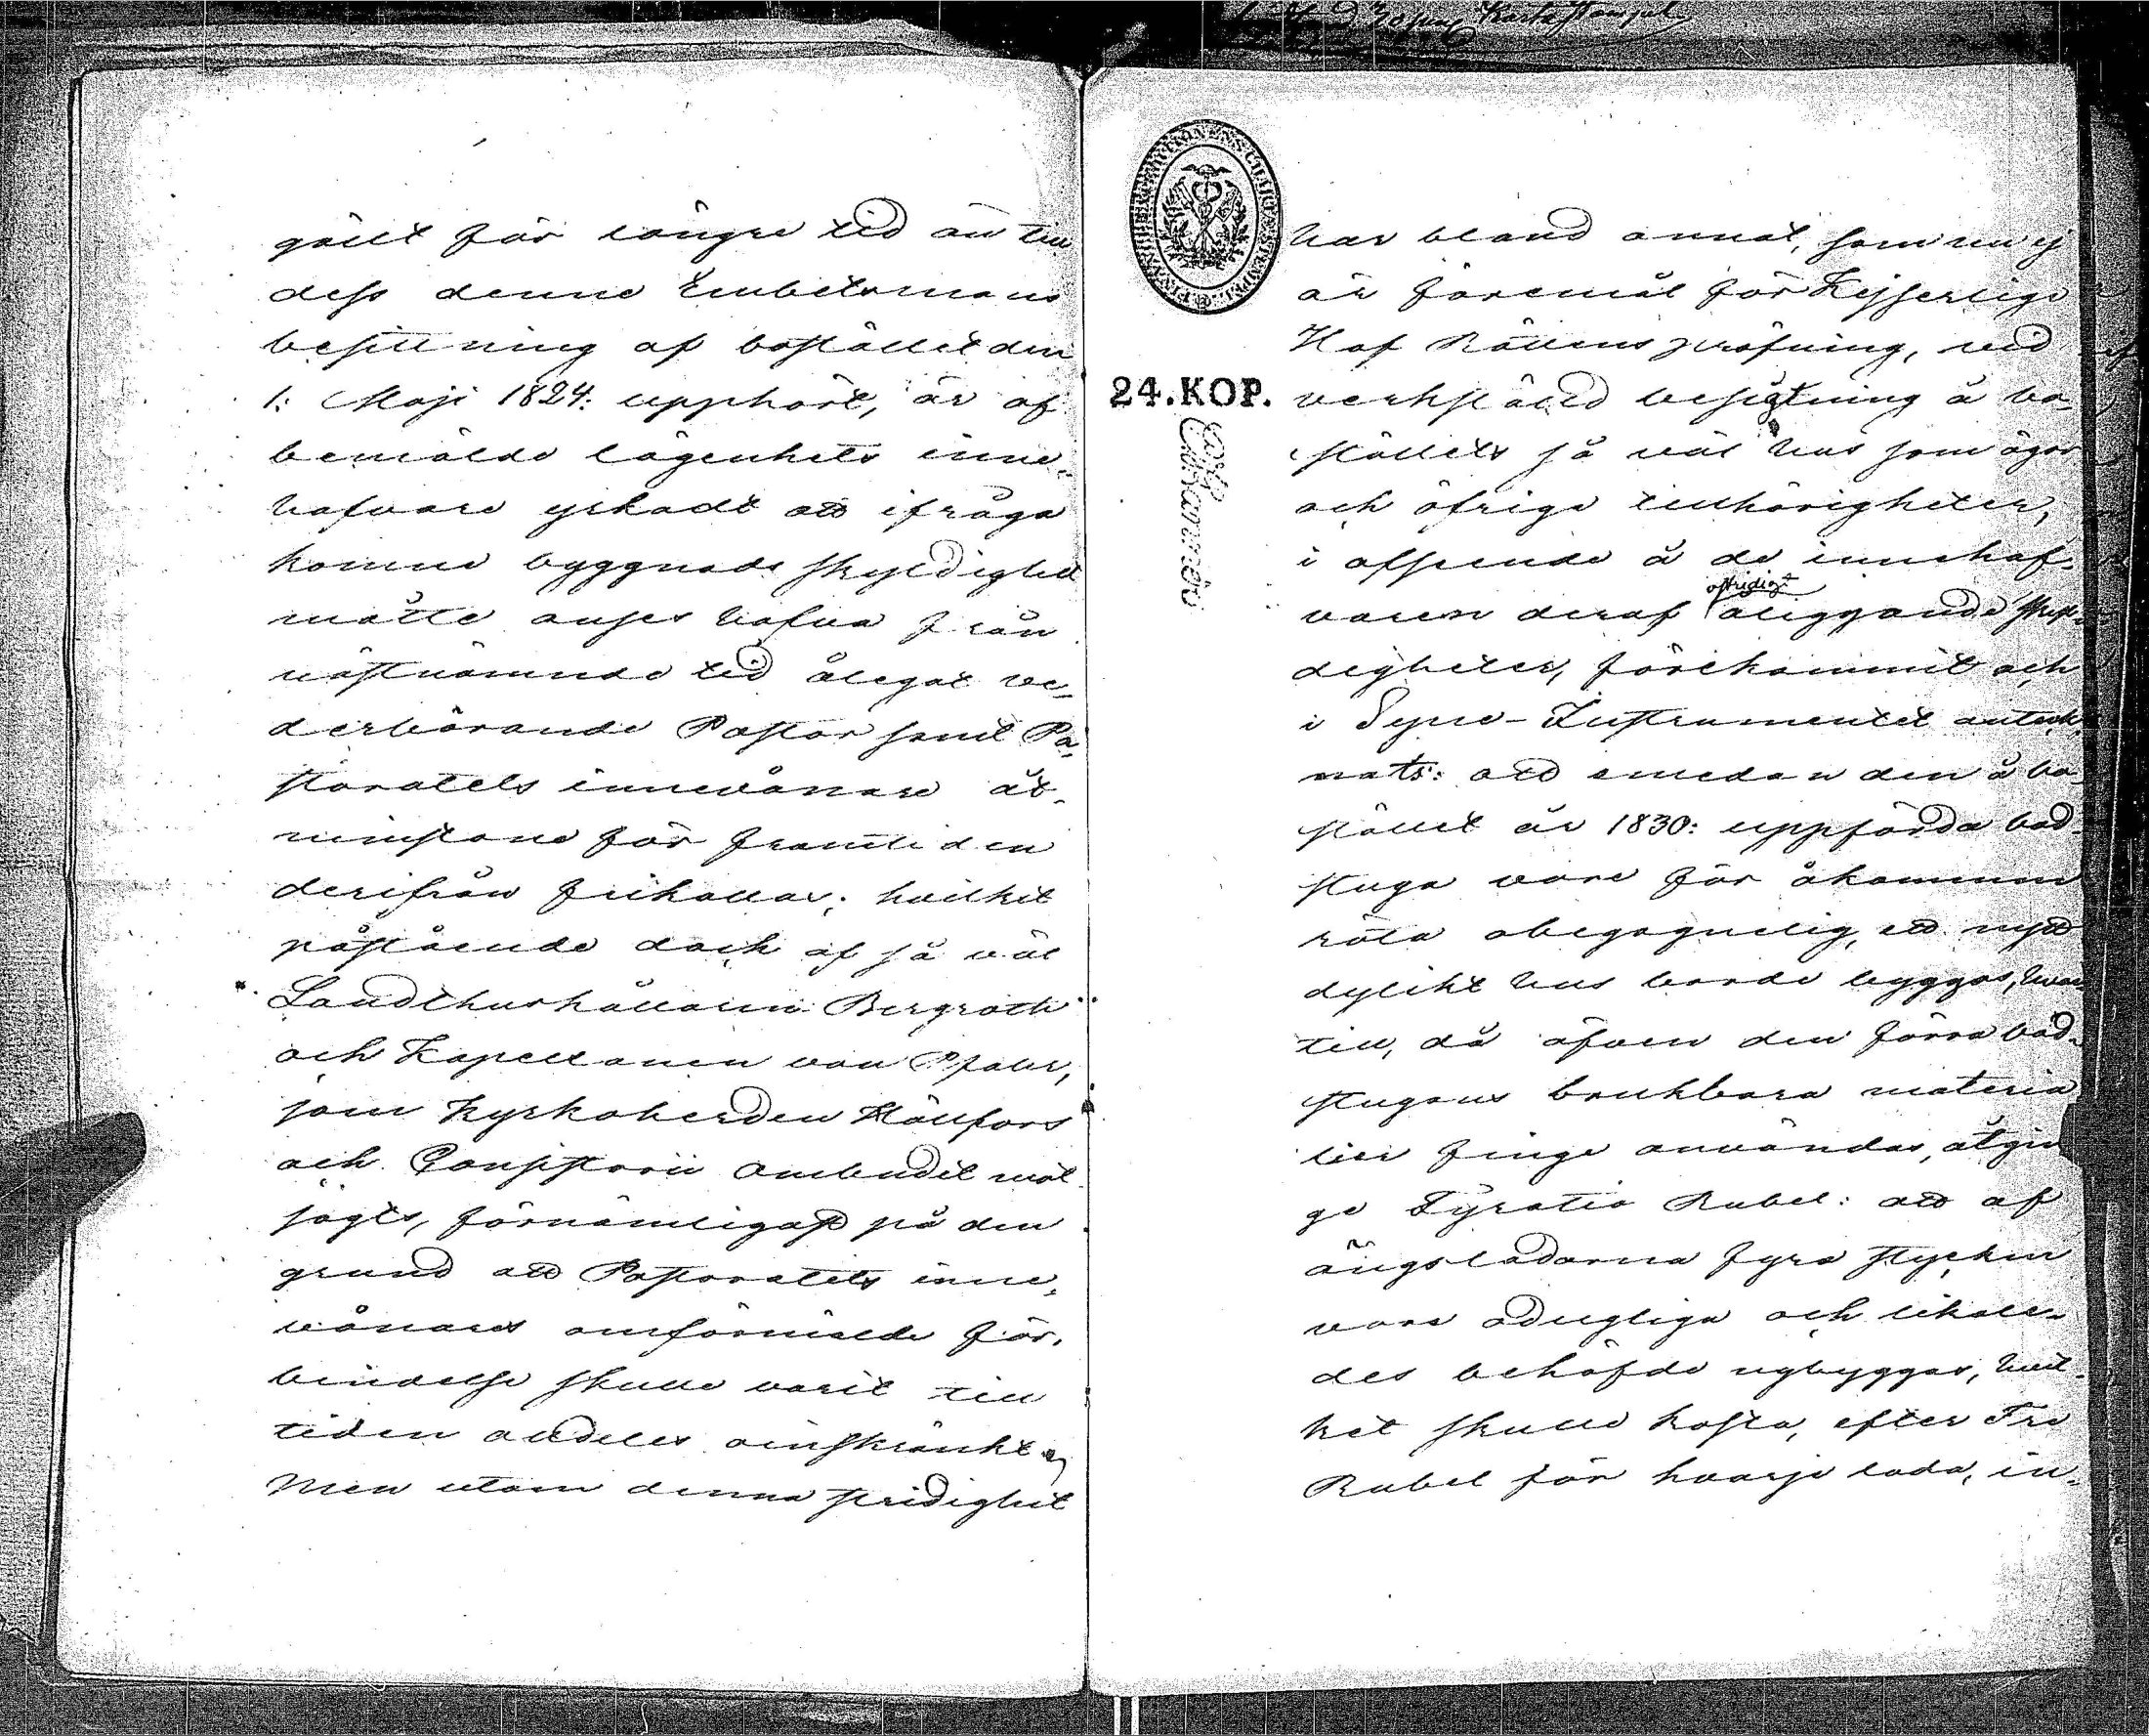 gällt för längre tid än till
dess denne Embetsmans
besittning af bostället den
1: Maji 1824: upphört, är af
bemälde lägenhets inne-
hafvare yrkadt att ifråga
komne byggnads skyldighet
måtte anses hafva från
nästnämnde tid ålegat ve-
derbörande Pastor samt Pa-
storatets innevånare åt-
minstone för framtiden
derifrån frikallas; hvilket
påstående dock af så väl
Landthushållaren Bergroth
och Kapellanen von Pfaler,
som Kyrkoherden Hällfors
och Consistorii Ombudet mot-
sägts, förnämligast på den
grund att Pastoratets inne-
vånares omförmälde för-
bindelse skulle varit till
tiden alldeles oinskränkt.
Men utom denna stridighet
har bland annat, som nu ej
är föremål för Kejserliga
Hof Rättens pröfning, vid
24.KOP. verkställd besigtning å bo-
ställets så väl hus som ägor
och öfriga tillhörigheter,
i afseende å de innehaf-
varen deraf ostridigt åliggande skyl-
digheter, förekommit och
i Syne-Instrumentet anteck-
nats: att emedan den å bo-
stället år 1830: uppförda bad-
stuga vore för åkommen
röta obegagnelig, ett nytt
dylikt hus borde byggas, hvar-
till, då äfven den förra bad-
stugans brukbara materia
lier finge användas, åtgin
ge Fyratio Rubel: att af
ängsladorna fyra stycken
voro odugliga och likale-
des behöfde nybyggas, hvil-
ket skulle kosta, efter Tre
Rubel för hvarje lada, in-